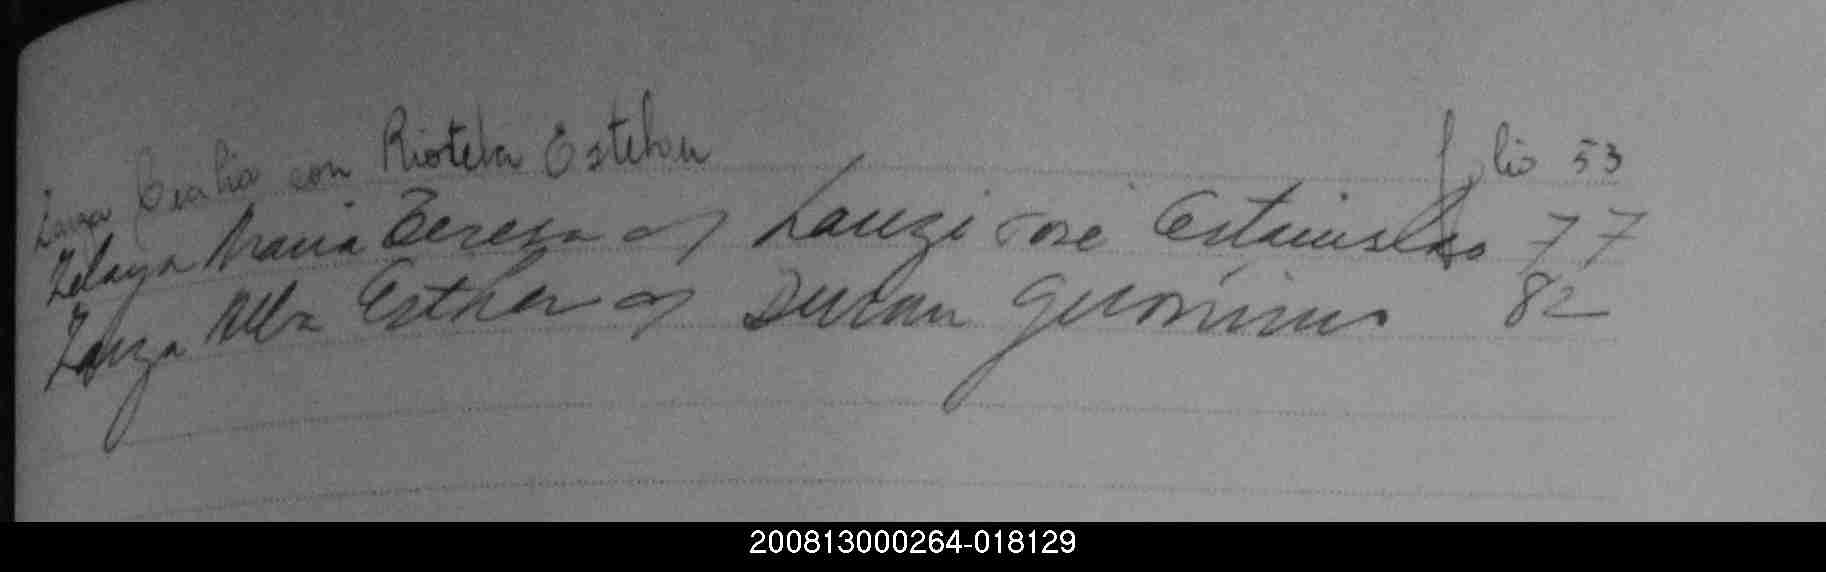 Zanga Cecilia con Riotela Esteban folio 53
Zelaya Maria Tereza c/ Lanzi José Estanislao 77
Zanza Alba Esther c/ Duran Geronimo 82
200813000264-018129